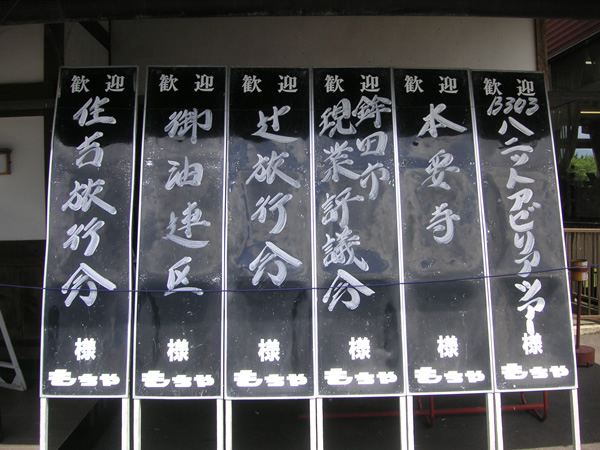 歓迎
B303
ハニットアビリアツアー
様
もきや
歓迎
本要寺
様
もきや
歓迎
鉾田市
現業評議会
様
もきや
歓迎
辻旅行会
様
もきや
歓迎
御油連区
様
もきや
歓迎
住吉旅行会
様
もきや